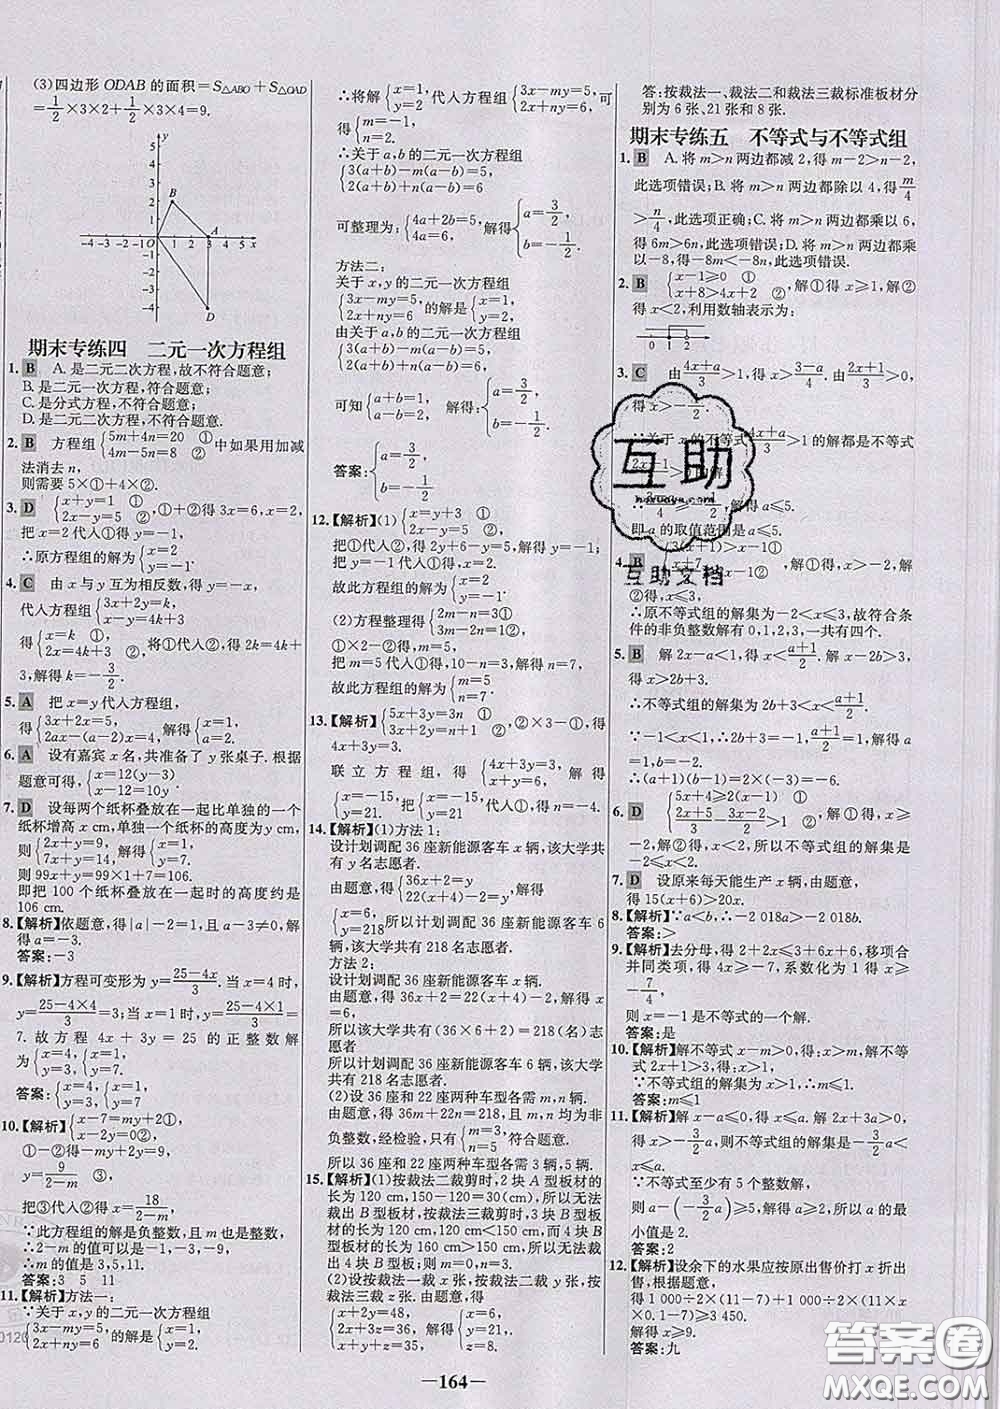 (3)四边形 ODAB 的面积=S△ABO+S△OAD
=1/2×3×2+1/2×3×4=9.
y
5
4
3
2
1
B
A
-4 -3 -2 -1 O 1 2 3 4 5 x
-1
-2
-3
-4
D
期末专练四 二元一次方程组
1. B A.是二元二次方程,故不符合题意;
B.是二元一次方程,符合题意;
C.是分式方程,不符合题意;
D.是二元二次方程,不符合题意.
2. B 方程组{5m+4n=20 ① 4m-5n=8 ② 中如果用加减
法消去 n,
则需要①×5+②×4.
3. D {x+y=1 ① 2x-y=5 ②,①+②得 3x=6,x=2.
把 x=2 代入①得 y=-1,
∴原方程组的解为{x=2, y=-1.
4. C 由 x 与 y 互为相反数,得 y=-x,
代入方程组{3x+2y=k, x-y=4k+3
得{x=k ① 2x=4k+3 ②,将①代入②,得 2k=4k+
3,解得 k=-3/2.
5. A 把 x=y 代入方程组,
得{3x+2x=5, 2ax-(a-2)x=4, 解得{x=1, a=2.
6. A 设有嘉宾 x 名,共准备了 y 张桌子.根据
题意可得,{x=12(y-3) x-10=10y
7. D 设每两个纸杯叠放在一起比单独的一个
纸杯增高 x cm,单独一个纸杯的高度为 y cm,
则{2x+y=9, 7x+y=14, 解得{x=1, y=7.
则 99x+y=99×1+7=106.
即把 100 个纸杯叠放在一起时的高度约是
106 cm.
8.【解析】依题意,得|a|-2=1,且 a-3≠0,解
得 a=-3.
答案:-3
9.【解析】方程可变形为 y=(25-4x)/3. 当 x=4 时,
y=(25-4×4)/3=3;当 x=1 时,y=(25-4×1)/3=
7. 故方程 4x+3y=25 的正整数解
为{x=4, y=3,{x=1, y=7.
答案:{x=4, y=3,{x=1, y=7
10.【解析】{x-7=my+2①, x-2y=0②,
①-②得-my+2y=9,
y=9/(2-m) ③,
把③代入②得:x=18/(2-m),
∵此方程组的解为负整数,且 m 也是整数,
∴2-m 的值可以是-1,-3,-9,
∴m 的值是 3,5,11.
答案:3 5 11
11.【解析】方法一:
∵关于 x,y 的二元一次方程组
{3x-my=5, 2x+ny=6 的解为{x=1, y=2,
∴将解{x=1, y=2 代入方程组{3x-my=5, 2x+ny=6, 可
得{m=-1, n=2.
∴关于 a,b 的二元一次方程组
{3(a+b)-m(a-b)=5, 2(a+b)+n(a-b)=6
可整理为:{4a+2b=5, 4a=6, 解得{a=3/2, b=-1/2.
方法二:
关于 x,y 的二元一次方程组
{3x-my=5, 2x+ny=6 的解是{x=1, y=2,
由关于 a,b 的二元一次方程组
{3(a+b)-m(a-b)=5, 2(a+b)+n(a-b)=6
可知{a+b=1, a-b=2. 解得:{a=3/2, b=-1/2.
答案:{a=3/2, b=-1/2
12.【解析】(1){x=y+3 ① 2x+3y=1 ②,
把①代入②得:2y+6+3y=1,解得:y=-1,
把 y=-1 代入①得:x=2,
故此方程组的解为{x=2, y=-1.
(2)方程整理得{3m-2n=11 ① 3m-n=13 ②,
②-①得:n=2,
把 n=2 代入②得:m=5,
故此方程组的解为{m=5, n=2.
13.【解析】{5x+3y=3n ① 3x+2y=n+1 ②,②×3-①,得:
4x+3y=3,
联立方程组,得{4x+3y=3, x+y=6,
解得{x=-15, y=21. 把{x=-15, y=21 代入①,得 n=-4.
14.【解析】(1)方法 1:
设计划调配 36 座新能源客车 x 辆,该大学共
有 y 名志愿者.
所以计划调配 36 座新能源客车 6
辆,该大学共有 218 名志愿者.
方法 2:
设计划调配 36 座新能源客车 x 辆.
由题意,得 36x+2=22(x+4)-2,解得 x
=6,
所以该大学共有(36×6+2)=218(名)志
愿者.
所以计划调配 36 座新能源客车 6 辆,该大学
共有 218 名志愿者.
(2)设 36 座和 22 座两种车型各需 m 辆,n 辆.
由题意,得 36m+22n=218,且 m,n 均为非
负整数,经检验,只有{m=3, n=5, 符合题意.
所以 36 座和 22 座两种车型各需 3 辆,5 辆.
15.【解析】(1)按裁法二裁剪时,2 块 A 型板材的
长为 120 cm,150-120=30(cm),所以无法
裁出 B 型板,按裁法三裁剪时,3 块 B 型板材
的长为 120 cm,120 cm<150 cm,而 4 块 B
型板材的长为 160 cm>150 cm,所以无法裁出
4 块 B 型板;∴m=0,n=3.
(2)设按裁法一裁 x 张,按裁法二裁 y 张,按
裁法三裁 z 张.由题意,得
{x+2y=48, 2x+3z=36, x+y+z=35, 解得{x=6, y=21, z=8.
答:按裁法一、裁法二和裁法三裁标准板材分
别为 6 张、21 张和 8 张.
期末专练五 不等式与不等式组
1. B A.将 m>n 两边都减 2,得 m-2>n-2,
此选项错误;B.将 m>n 两边都除以 4,得 m/4
>n/4,此选项正确;C.将 m>n 两边都乘以 6,
得 6m>6n,此选项错误;D.将 m>n 两边都乘
以-8,得-8m<-8n,此选项错误.
2. B {x-1≥0 ① x+8>4x+2 ②,解①得 x≥1,解②
得 x<2,利用数轴表示为:
0 1 2
3. C 由(4x+a)/3>1,得 x>(3-a)/4. 由(2x+1)/3>0,
得 x>-1/2.
∵关于 x 的不等式(4x+a)/3>1 的解都是不等式
即 a 的取值范围是 a≤5.
4. B
②得,x≤3,
∴原不等式组的解集为-2<x≤3,故符合条
件的非负整数解有 0,1,2,3,一共有四个.
5. B 解 2x-a<1 得 x<(a+1)/2. 解 x-2b>3,
得 x>2b+3.
∴不等式组的解集为 2b+3<x<(a+1)/2.
∵-1<x<1,∴2b+3=-1,(a+1)/2=1,解得 a
=1,b=-2.
∴(a+1)(b-1)=2×(-3)=-6.
6. D
-2,解②得,x<m,∵不等式组的解集是
-2≤x<1,∴m=1.
7. D 设原来每天能生产 x 辆,由题意,
得 15(x+6)>20x.
8.【解析】∵a<b,∴-2 018a>-2 018b.
答案:>
9.【解析】去分母,得 2+2x≤3x+6+6,移项合
并同类项,得 4x≥-7,系数化为 1 得 x≥
-7/4,
则 x=-1 是不等式的一个解.
答案:是
10.【解析】解不等式 x-m>0,得:x>m,
解不等式 1+2x≥3,得:x≥1,
∵不等式组的解集为 x≥1,∴m≤1.
答案:m≤1
11.【解析】解 x-a≤0,得 x≤a,解 2x+3a>0,
得 x>-3/2a,则不等式组的解集是-3/2a<
x≤a.
∵不等式至少有 5 个整数解,
则 a-(-3/2a)≥5,解得 a≥2. 所以 a 的最
小值是 2.
答案:2
12.【解析】设余下的水果应按原出售价打 x 折出
售,根据题意,得
解得 x≥9.
答案:九
—164—
互助
互助文档
答案圈
MXQE.COM